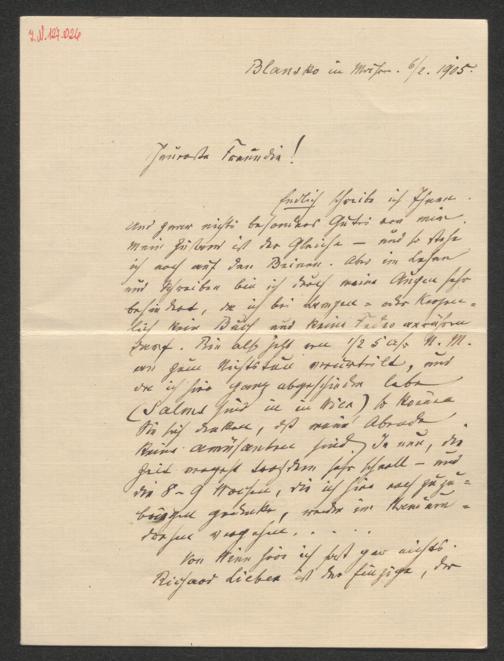 J.N. 127.026
Blansko in Mähr. 6/2. 1905.
Teuerste Freundin!
Endlich schreibe ich Ihnen.
Und zwar nichts besonders Gutes von mir.
Mein Zustand ist der Gleiche – und so stehe
ich noch auf den Beinen. Aber im Lesen
und Schreiben bin ich durch meine Augen sehr
behindert, da ich bei Lampen- oder Kerzen-
licht kein Buch und keine Feder anrühren
darf. Bin also jetzt von 1/2 5 Uhr N. M.
an zum Nichtstun verurteilt, und
da ich hier ganz abgeschieden lebe
(Salms sind in Wien) so können
Sie sich denken, daß meine Abende
keine amüsanten sind. Je nun, die
Zeit vergeht trotzdem sehr schnell – und
die 8–9 Wochen, die ich hier noch zuzu-
bringen gedenke, werden im Handum-
drehen vergehen. . . . .
Von Wien höre ich fast gar nichts.
Richard Lieben ist der Einzige, der